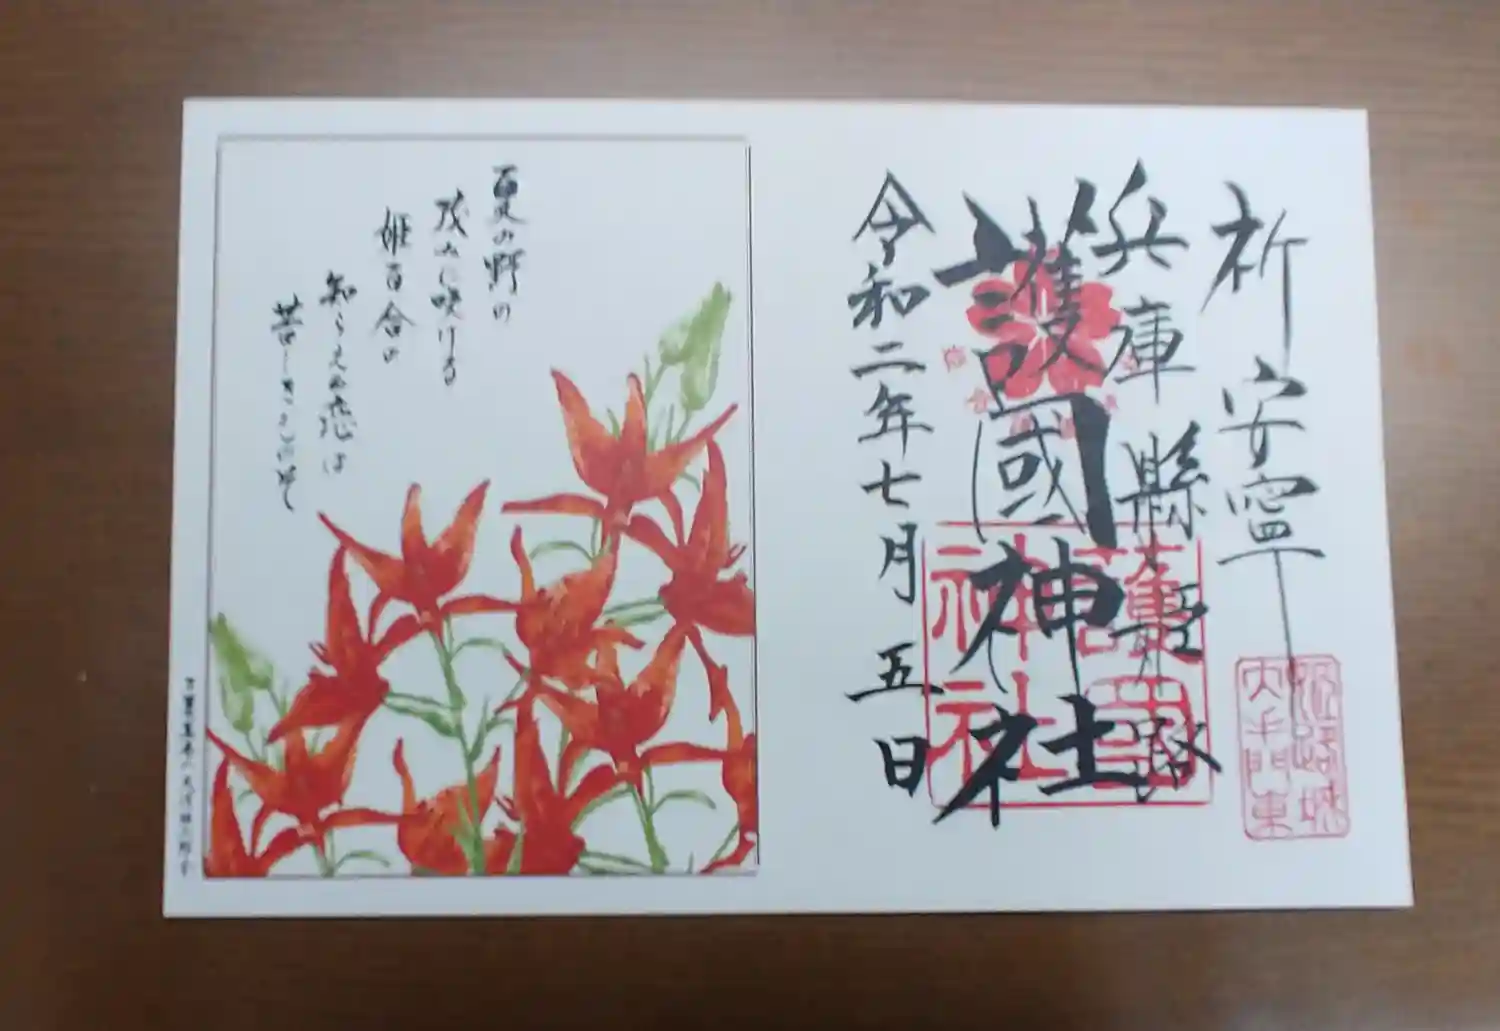 祈安寧
兵庫縣姫路
護國神社
令和二年七月五日
護國
神社
姫路城
大手門東
夏の野の
茂みに咲ける
姫百合の
知らえぬ恋は
苦しきものそ